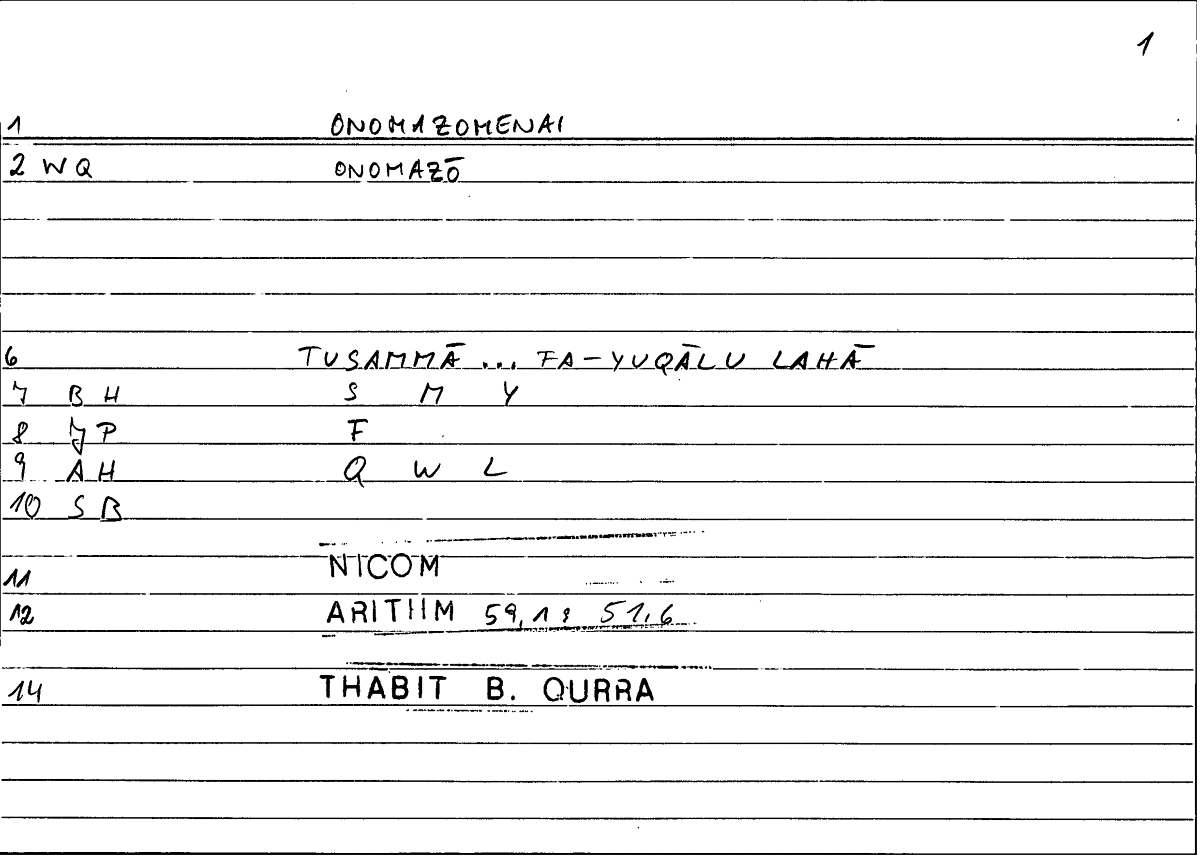 1
1 ONOMAZOMENAI
2 WQ ONOMAZŌ
6 TUSAMMĀ ... FA-YUQĀLU LAHĀ
7 BH S M Y
8 JP F
9 AH Q W L
10 SB
11 NICOM
12 ARITHM 59,1 : 51,6
14 THABIT B. QURRA